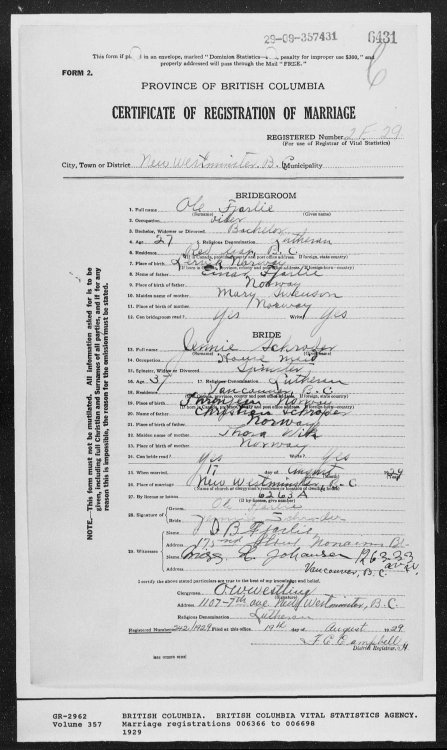 29-09-357431
6431
This form if placed in an envelope, marked "Dominion Statistics— penalty for improper use $300," and
properly addressed will pass through the Mail "FREE."
FORM 2.
PROVINCE OF BRITISH COLUMBIA
CERTIFICATE OF REGISTRATION OF MARRIAGE
REGISTERED Number 29
(For use of Registrar of Vital Statistics)
City, Town or District New Westminster, B. C. Municipality
BRIDEGROOM
1. Full name Ole Fjarlie
(Surname) (Given names)
2. Occupation
3. Bachelor, Widower or Divorced Bachelor
4. Age 27 5. Religious Denomination Lutheran
6. Residence B. C.
7. Place of birth Norway
8. Name of father Fjarlie
9. Place of birth of father Norway
10. Maiden name of mother Mary
11. Place of birth of mother Norway
12. Can bridegroom read? Yes Write? Yes
BRIDE
13. Full name Jennie Schroder
14. Occupation House maid
15. Spinster, Widow or Divorced Spinster
16. Age 37 17. Religious Denomination Lutheran
18. Residence Vancouver, B. C.
19. Place of birth Norway
20. Name of father
21. Place of birth of father Norway
22. Maiden name of mother Thora
23. Place of birth of mother Norway
24. Can bride read? Yes Write? Yes
25. When married? 17 day of August 1929
26. Place of marriage New Westminster, B. C.
(Name of church or clergyman's residence or location of dwelling house)
27. By license or banns 6263 A
28. Signature of Ole Fjarlie
Schroder
29. Witnesses Name D B Fjarlie
Address Street Nanaimo
Name Miss Johansen
Address Vancouver, B. C.
I certify the above stated particulars are true to the best of my knowledge and belief.
Clergyman O W Westling
(Signature)
Address 1107-7th ave New Westminster, B. C.
Religious Denomination Lutheran
Registered Number 242/1929 Filed at this office. 19th day August 1929
F. C. Campbell
District Registrar.
NOTE.—This form must not be mutilated. All information asked for is to be
given, including full Christian and Surnames of all parties, and if for any
reason this is impossible, the reason for the omission must be stated.
GR-2962
Volume 357
BRITISH COLUMBIA. BRITISH COLUMBIA VITAL STATISTICS AGENCY.
Marriage registrations 006366 to 006698
1929